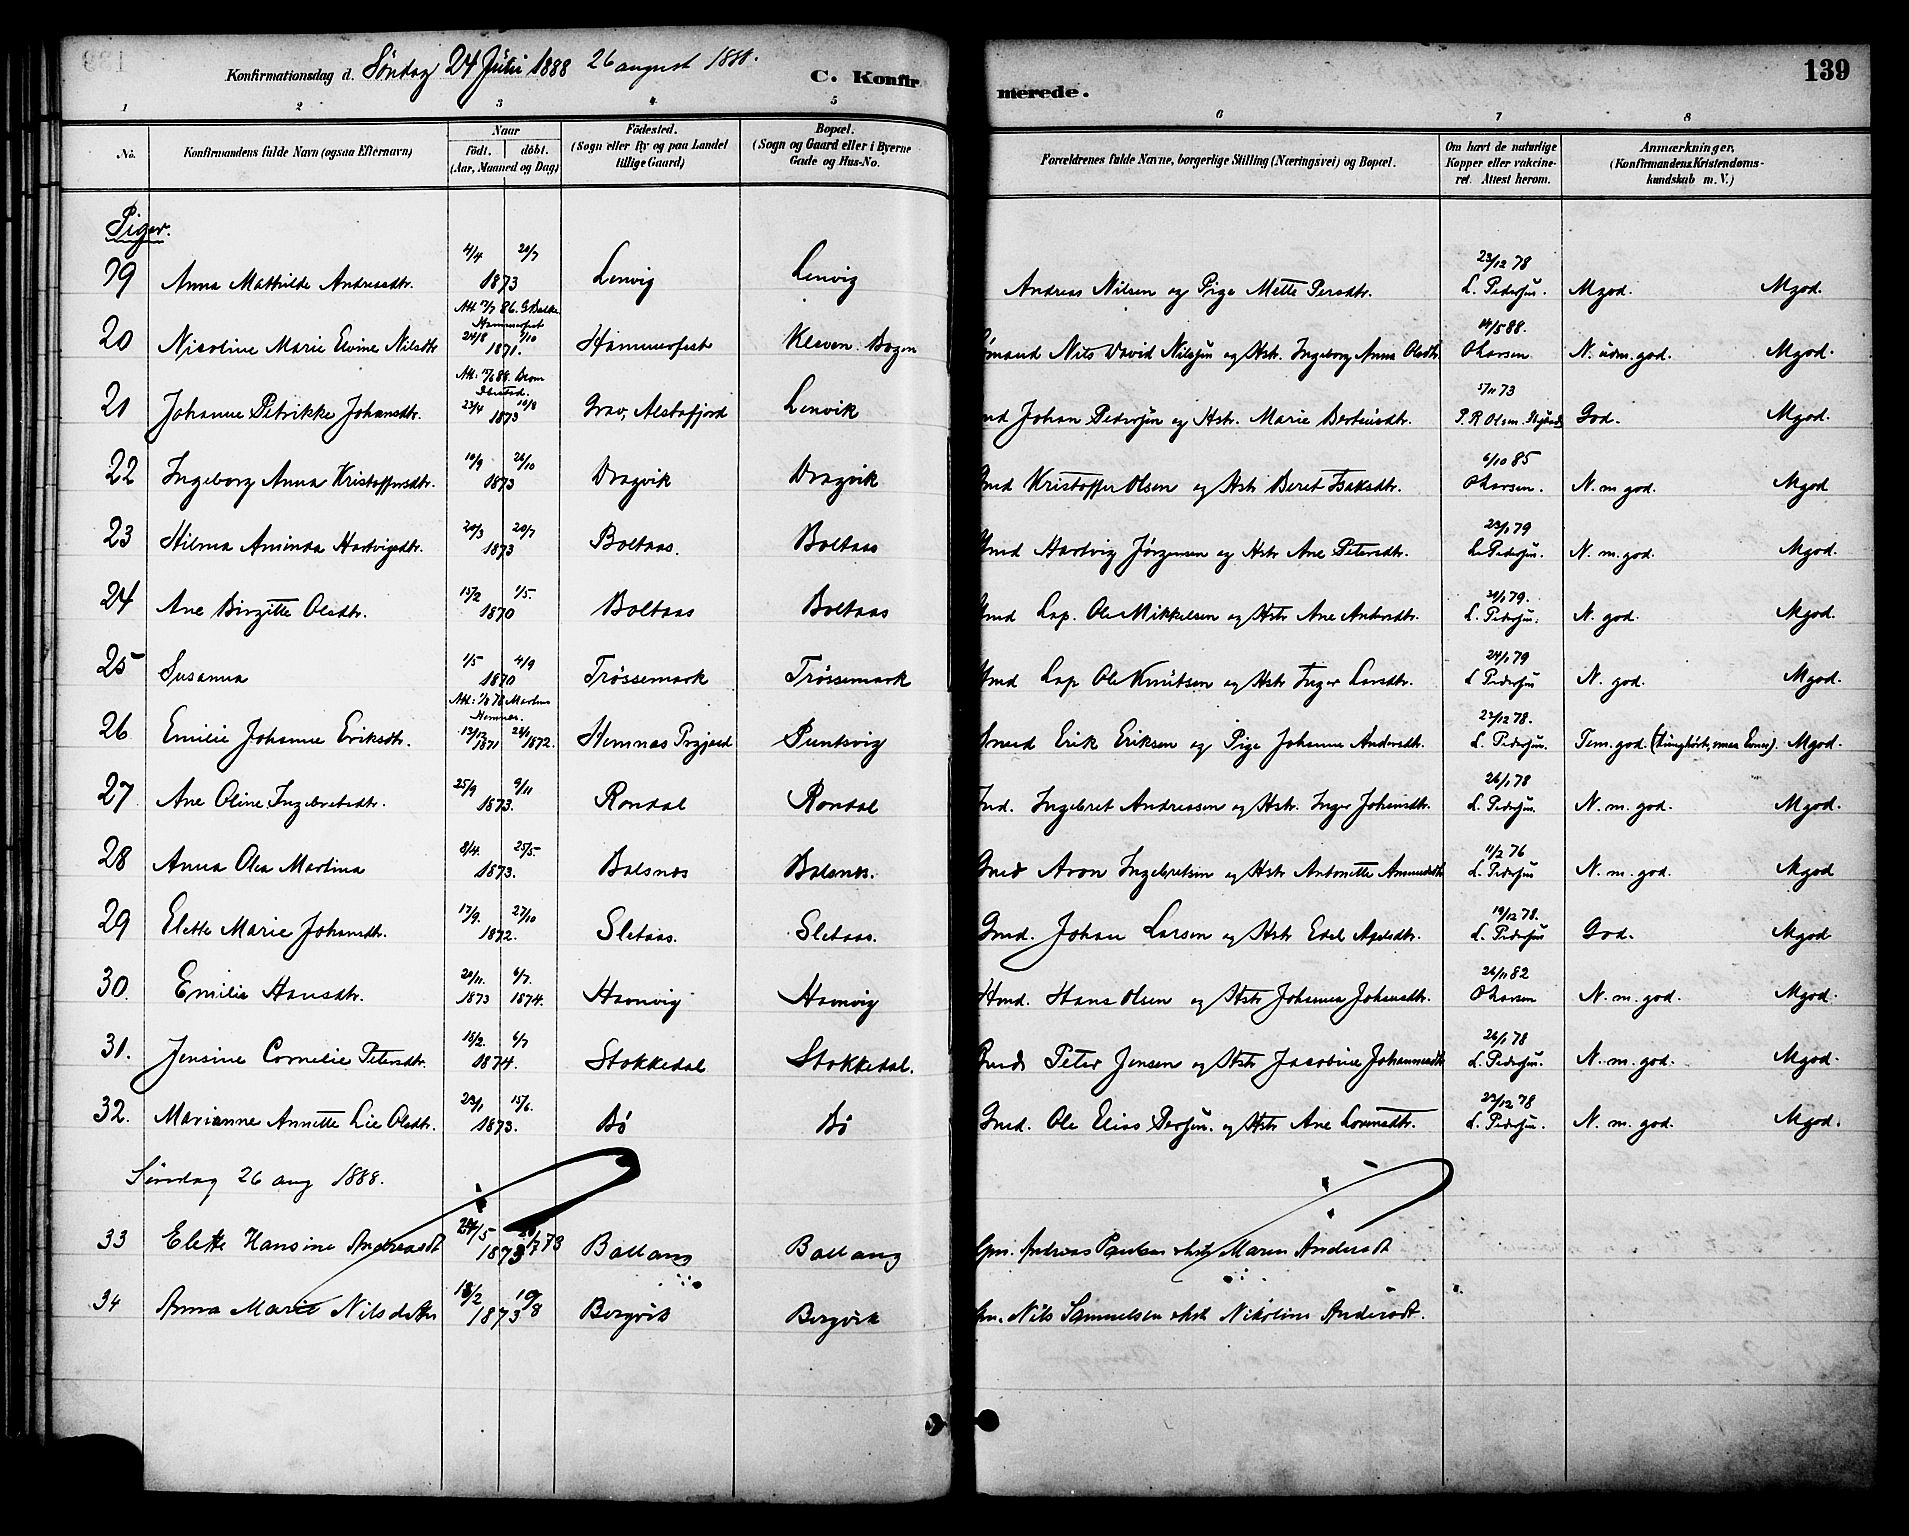 Konfirmationsdag d. Søndag 24 Juni 1888 26 august 1888. C. Konfir merede. 139
1 2 3 4 5 6 7 8
No. Konfirmandens fulde Navn (ogsaa Efternavn) Naar födt. döbt. (Aar, Maaned og Dag) Födested. (Sogn eller By og paa Landet tillige Gaard) Bopæl. (Sogn og Gaard eller i Byerne Gade og Hus-No. Forældrenes fulde Navne, borgerlige Stilling (Næringsvei) og Bopæl. Om havt de naturlige Kopper eller vakcineret. Attest herom. Anmærkninger, (Konfirmandens Kristendomskundskab m. V.)
Piger.
19 Anna Mathilde Andreasdtr. 4/4 20/7 1873 Lenvig Lenvig Andreas Nilsen og Pige Mette Persdtr. 23/12 78 L. Pedersen. Mgod. Mgod.
20 Nicoline Marie Elvine Nilsdtr Hammerfest 24/8 1/10 1871. Hammerfest Kleven. Bogen Nils David Nilsen og Hstr. Ingeborg Anna Olsdtr 14/5 88. O Larsen N. udm. god. Mgod.
21 Johanne Petrikke Johansdtr. Ibestad. 23/4 10/8 1873 Grav, Alstafjord Lenvik Johan Pedersen og Hstr. Marie Berteusdtr. 5/11 73 P. R Olsen. God. Mgod.
22 Ingeborg Anna Kristoffersdtr. 10/9 26/10 1873 Dragvik Dragvik Gmd Kristoffer Olsen og Hstr Beret Isaksdtr. 6/10 85 O Larsen. N. m. god. Mgod
23 Hilma Aminda Hartvigsdtr. 20/3 20/7 1873 Boltaas. Boltaas Gmd Hartvig Jørgensen og Hstr Ane Petersdtr. 23/1 79 L. Pedersen. N. m. god. Mgod.
24 Ane Birgitte Olsdtr. 15/2 1/5. 1870 Boltaas Boltaas Gmd Lap. Ole Mikkelsen og Hstr Ane Andersdtr. 24/1 79. L. Pedersen. N. god. Mgod.
25 Susanna 1/5 4/9 1870 Trøssemark Trøssemark Gmd Lap Ole Knutsen og Hstr Inger Larsdtr. 24/1 79 L Pedersen N. god. Mgod.
26 Emilie Johanne Eriksdtr. Hemnes. 12/12 1871 24/1 1872. Hemnes Prgjæld Puntsvig Erik Eriksen og Pige Johanne Andersdtr. 27/12 78. L. Pedersen. Tem. god. (tunghørt, smaa Evner). Mgod.
27 Ane Oline Ingebretsdtr. 25/9 9/11 1873. Rondal Rondal Ingebret Andreassen og Hstr. Inger Johansdtr. 26/1 78 L. Pedersen. N. m. god. Mgod.
28 Anna Olea Martina 8/4. 25/5. 1873. Balsnes Balsnes. Gmd Aron Ingebretsen og Hstr Antonette Amundsdtr 11/2 76 L. Pedersen N. m. god. Mgod
29 Elette Marie Johansdtr. 17/9. 27/10 1872. Sletaas. Sletaas. Gmd. Johan Larsen og Hstr Edel Axelsdtr. 19/12 78. L. Pedersen God. Mgod
30. Emilie Hansdtr. 20/11. 1873 6/7. 1874. Havnvig Havnvig Hans Olsen og Hstr Johanna Johansdtr. 26/11 82 O Larsen N. m. god. Mgod.
31. Jensine Cornelie Petersdtr. 15/2. 6/7 1874. Stokkedal Stokkedal. Peter Jensen og Hstr Jacobine Johannesdtr 26/1 78 L. Pedersen. N. m. god. Mgod.
32. Marianne Annette Lie Olsdtr. 23/1 15/6. 1873. Bø Bø Gmd. Ole Elias Persen. og Hstr Ane Lorensdtr. 23/12 78 L. Pedersen. N. m. god. Mgod.
Søndag 26 aug 1888.
33 Elette Hansine Andreasdt 24/5 1873 Ballang Ballang Gm. Andreas Paulsen Maren Andersdt
34 Anna Marie Nilsdatter 18/2 1873 Bergvik Bergvik Gm. Nils Samuelsen Nikoline Andersdt.